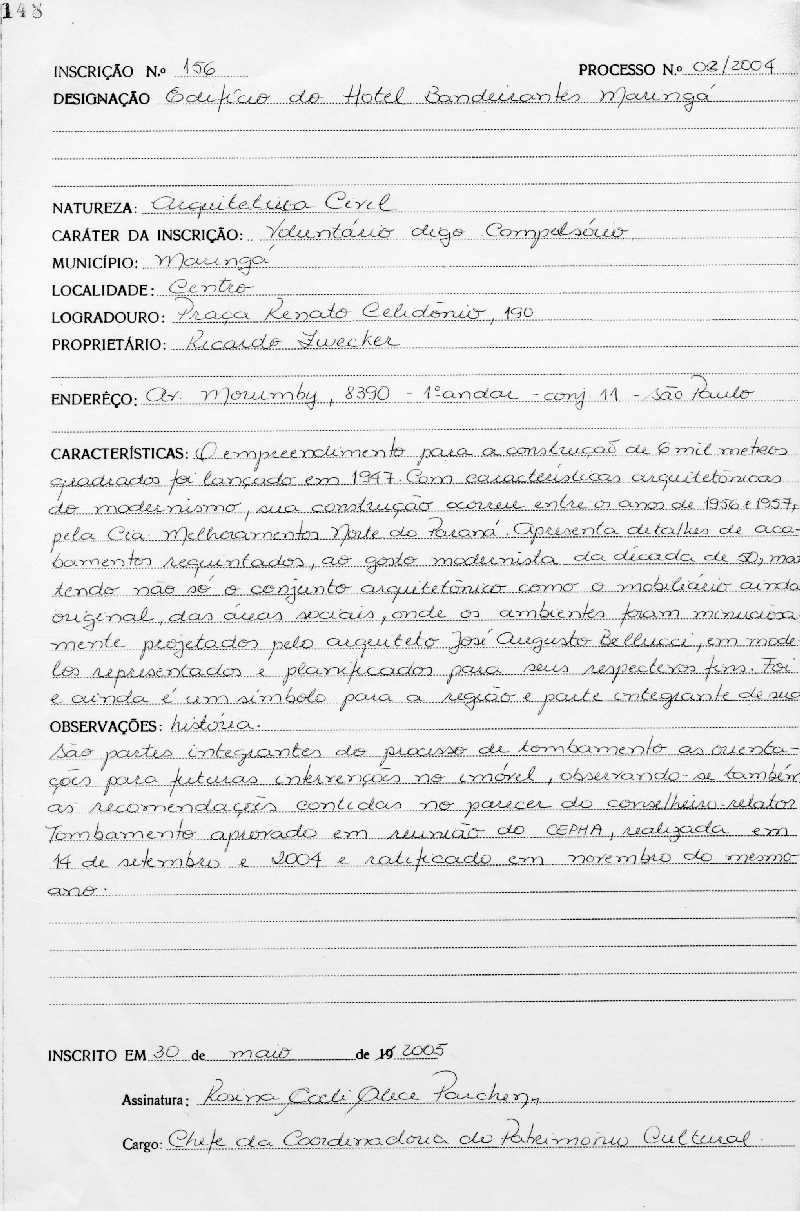 148
INSCRIÇÃO N.º 156 PROCESSO N.º 02/2004
DESIGNAÇÃO Edifício do Hotel Bandeirantes Maringá
NATUREZA: Arquitetura Civil
CARÁTER DA INSCRIÇÃO: Voluntário digo Compulsório
MUNICÍPIO: Maringá
LOCALIDADE: Centro
LOGRADOURO: Praça Renato Celidônio, 190
PROPRIETÁRIO: Ricardo Zwecker
ENDERÊÇO: Av. Morumby, 8390 - 1º andar - conj 11 - São Paulo
CARACTERÍSTICAS: O empreendimento para a construção de 6 mil metros
quadrados foi lançado em 1947. Com características arquitetônicas
do modernismo, sua construção ocorreu entre os anos de 1956 e 1957,
pela Cia Melhoramentos Norte do Paraná. Apresenta detalhes de aca-
bamentos requintados, ao gosto modernista da década de 50, man
tendo não só o conjunto arquitetônico como o mobiliário ainda
original, das áreas sociais, onde os ambientes foram minuciosa-
mente projetados pelo arquiteto José Augusto Bellucci, em mode-
los representados e planificados para seus respectivos fins. Foi
e ainda é um símbolo para a região e parte integrante de sua
OBSERVAÇÕES: história.
São partes integrantes do processo de tombamento as orienta-
ções para futuras intervenções no imóvel, observando-se também
as recomendações contidas no parecer do conselheiro-relator
Tombamento aprovado em reunião do CEPHA, realizada em
14 de setembro e 2004 e ratificado em novembro do mesmo
ano.
INSCRITO EM 30 de maio de 19 2005
Assinatura: Rosina Parchen
Cargo: Chefe da Coordenadoria do Patrimônio Cultural.